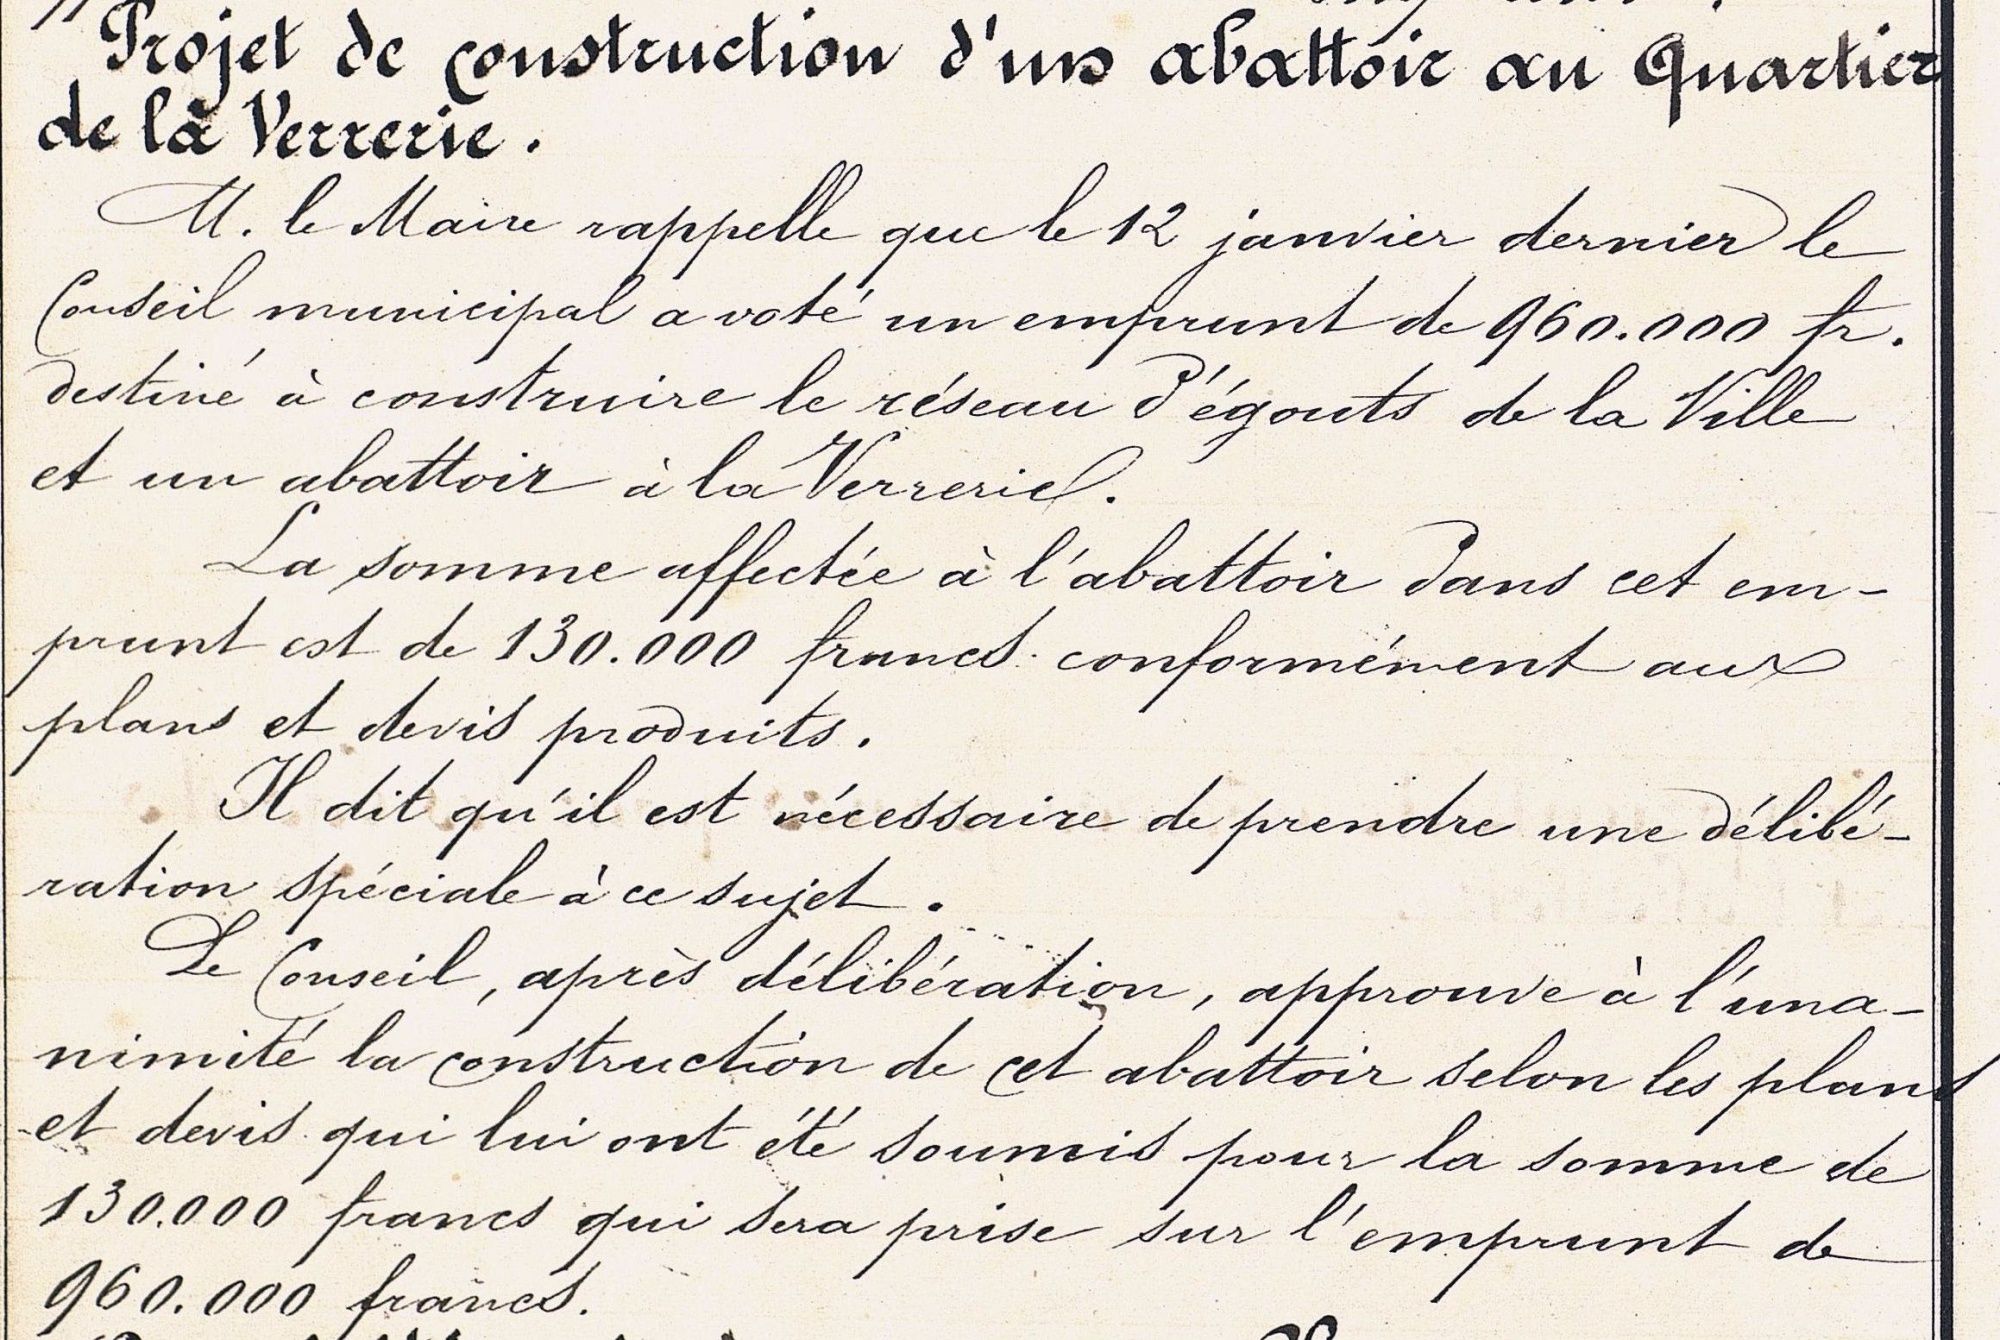 Projet de construction d'un abattoir au Quartier
de la Verrerie.
M. le Maire rappelle que le 12 janvier dernier le
Conseil municipal a voté un emprunt de 960.000 fr.
destiné à construire le réseau d'égouts de la Ville
et un abattoir à la Verrerie.
La somme affectée à l'abattoir dans cet em-
prunt est de 130.000 francs conformément aux
plans et devis produits.
Il dit qu'il est nécessaire de prendre une délibé-
ration spéciale à ce sujet.
Le Conseil, après délibération, approuve à l'una-
nimité la construction de cet abattoir selon les plans
et devis qui lui ont été soumis pour la somme de
130.000 francs qui sera prise sur l'emprunt de
960.000 francs.